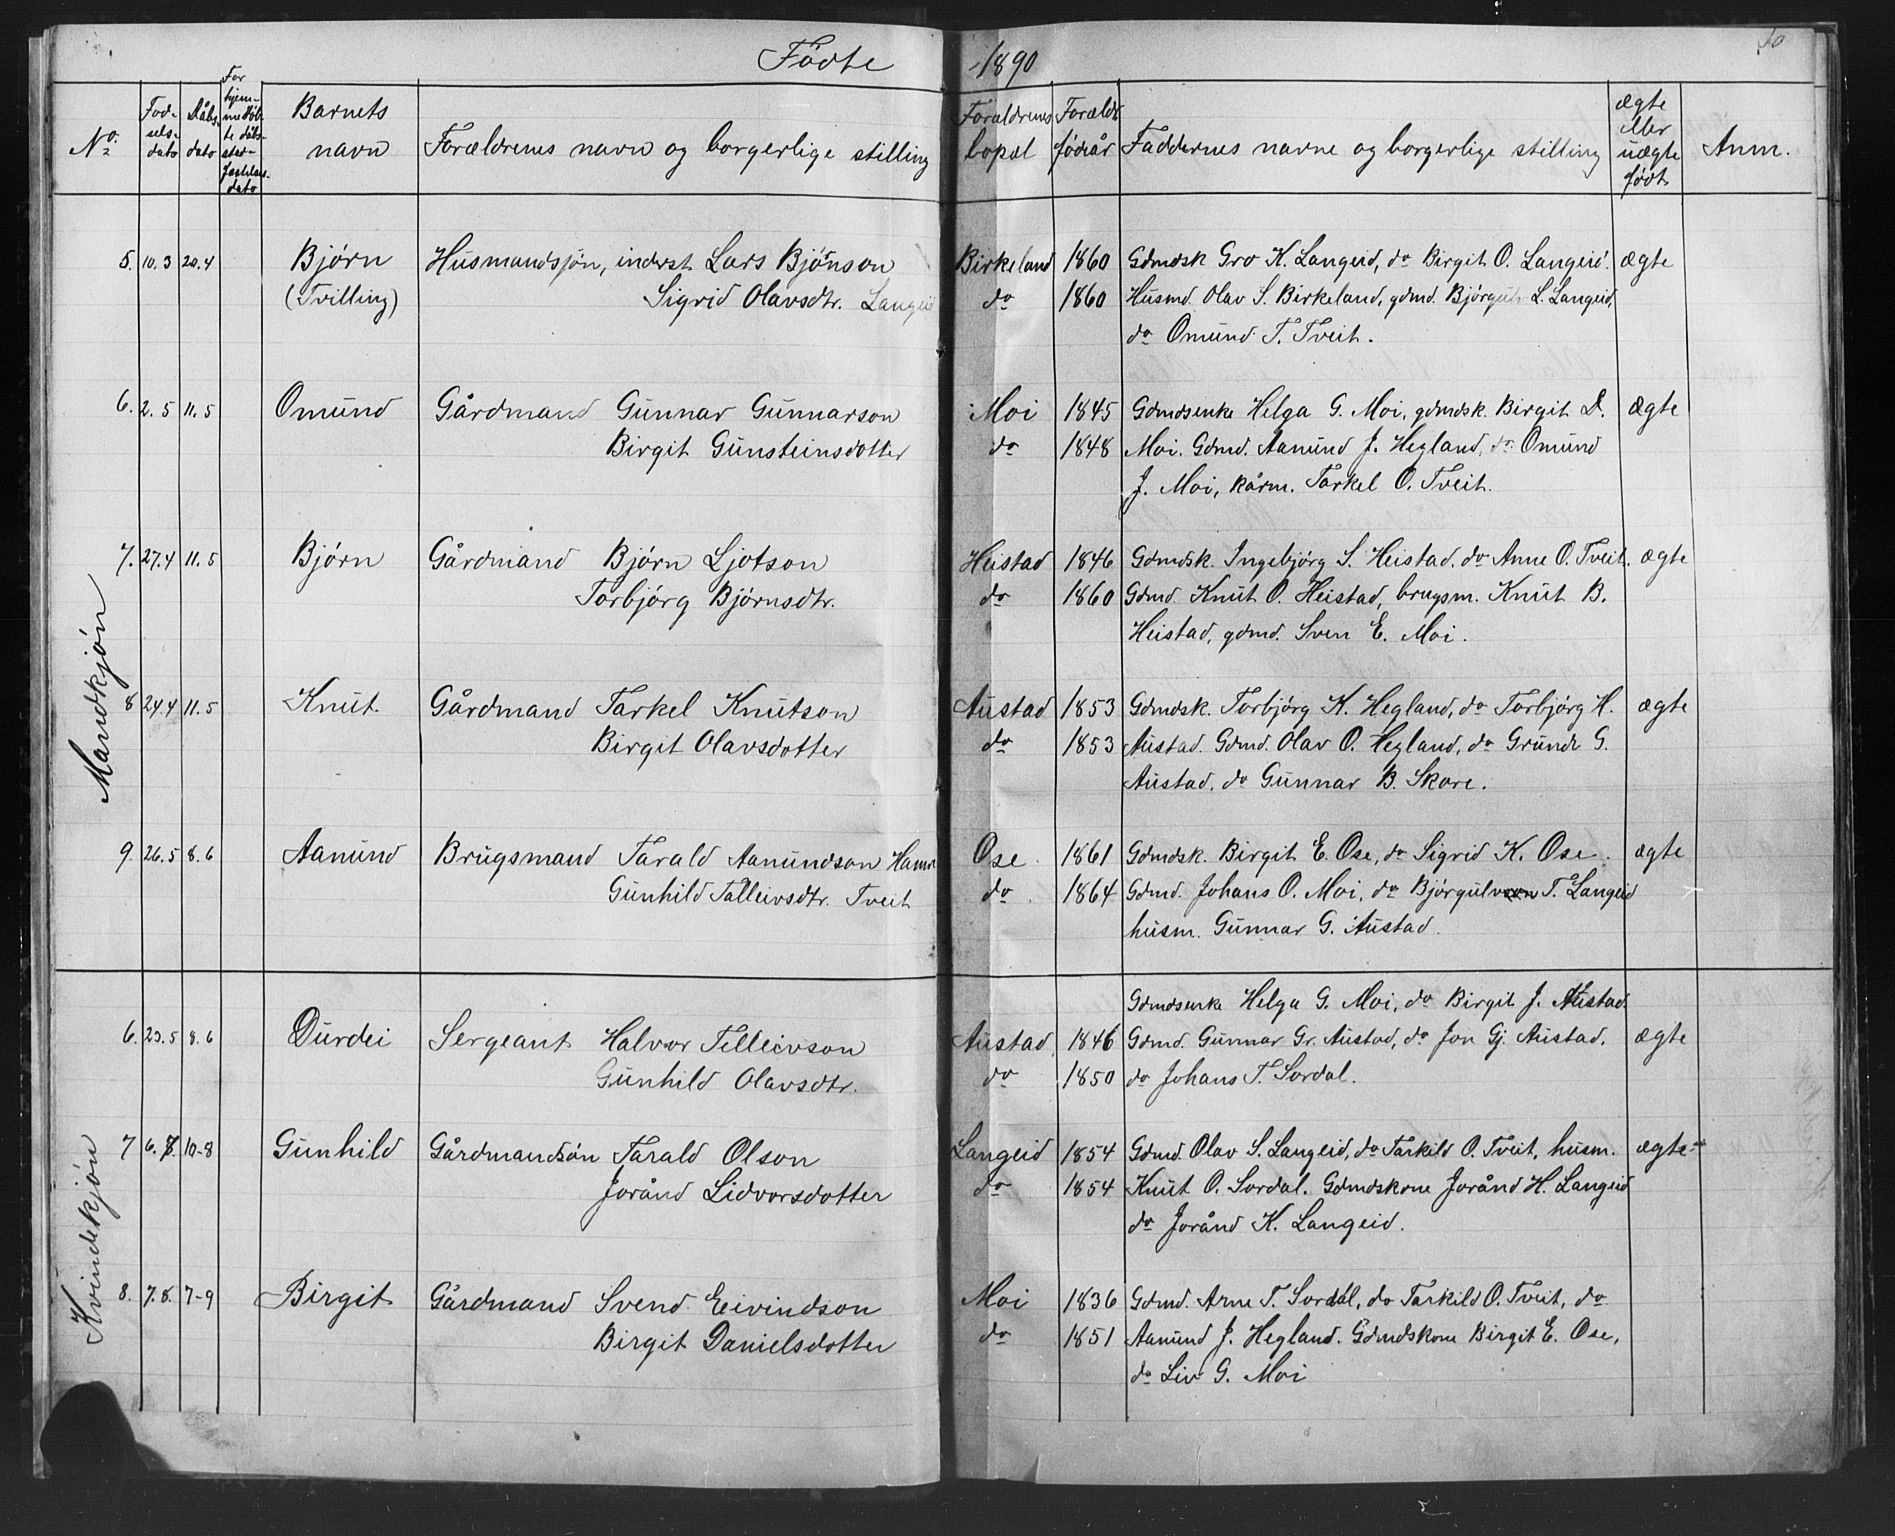 Fødte 1890
No. | Fødselsdato | Dåbsdato | For hjemmedøbte dåbsstadfæstelsesdato | Barnets navn | Forældrenes navn og borgerlige stilling | Forældrenes bopæl | Forældr. fødeår | Faddernes navne og borgerlige stilling | ægte eller uægte født | Anm.
Mandkjøn
5. 10.3 20.4 Bjørn Husmandsjøn, inderst Lars Bjønson Birkeland 1860 Gdmdsk Gro K. Langeid, do Birgit O. Langeid. ægte
(Tvilling) Sigrid Olavsdtr. Langeid do 1860 Husmd. Olav S. Birkeland, gdmd. Bjørgulv L. Langeid,
do Omund T. Tveit.
6. 2.5 11.5 Omund Gårdmand Gunnar Gunnarson Moi 1845 Gdmdsenke Helga G. Moi, gdmdsk. Birgit D. ægte
Birgit Gunsteinsdotter do 1848 Moi. Gdmd. Aanund J. Hegland, do Omund
J. Moi, kårm. Tarkel O. Tveit.
7. 27.4 11.5 Bjørn Gårdmand Bjørn Ljotson Heistad 1846 Gdmdsk. Ingebjørg S. Heistad, do Anne O. Tveit. ægte
Torbjørg Bjørnsdtr. do 1860 Gdmd. Knut O. Heistad, brugsm. Knut B.
Heistad, gdmd. Sven E. Moi.
8 24.4 11.5 Knut Gårdmand Tarkel Knutson Austad 1853 Gdmdsk. Torbjørg K. Hegland, do Torbjørg H. ægte
Birgit Olavsdotter do 1853 Austad. Gdmd. Olav O. Hegland, do Grunde G.
Austad, do Gunnar B. Skore.
9. 26.5 8.6 Aanund Brugsmand Tarald Aanundson Hamre Ose 1861 Gdmdsk. Birgit E. Ose, do Sigrid K. Ose. ægte
Gunhild Talleivsdtr. Tveit do 1864 Gdmd. Johans O. Moi, do Bjørgulv T. Langeid
husm. Gunnar G. Austad.
Kvindekjøn
Gdmdsenke Helga G. Moi, do Birgit J. Austad.
6. 23.5 8.6 Durdei Sergeant Halvor Telleivson Austad 1846 Gdmd. Gunnar Gr. Austad, do Jon Gj. Austad, ægte
Gunhild Olavsdtr. do 1850 do Johans T. Sordal.
7 6.7. 10-8 Gunhild Gårdmandsøn Tarald Olson Langeid 1854 Gdmd. Olav S. Langeid, do Tarkild O. Tveit, husm. ægte
Jorånd Lidvorsdotter do 1854 Knut O. Sordal. Gdmdskone Jorånd H. Langeid
do Jorånd K. Langeid.
8. 7.8. 7-9 Birgit Gårdmand Svend Eivindson Moi 1836 Gdmd. Arne T. Sordal, do Tarkild O. Tveit, do
Birgit Danielsdotter do 1851 Aanund J. Hegland. Gdmdskone Birgit E. Ose,
do Liv G. Moi